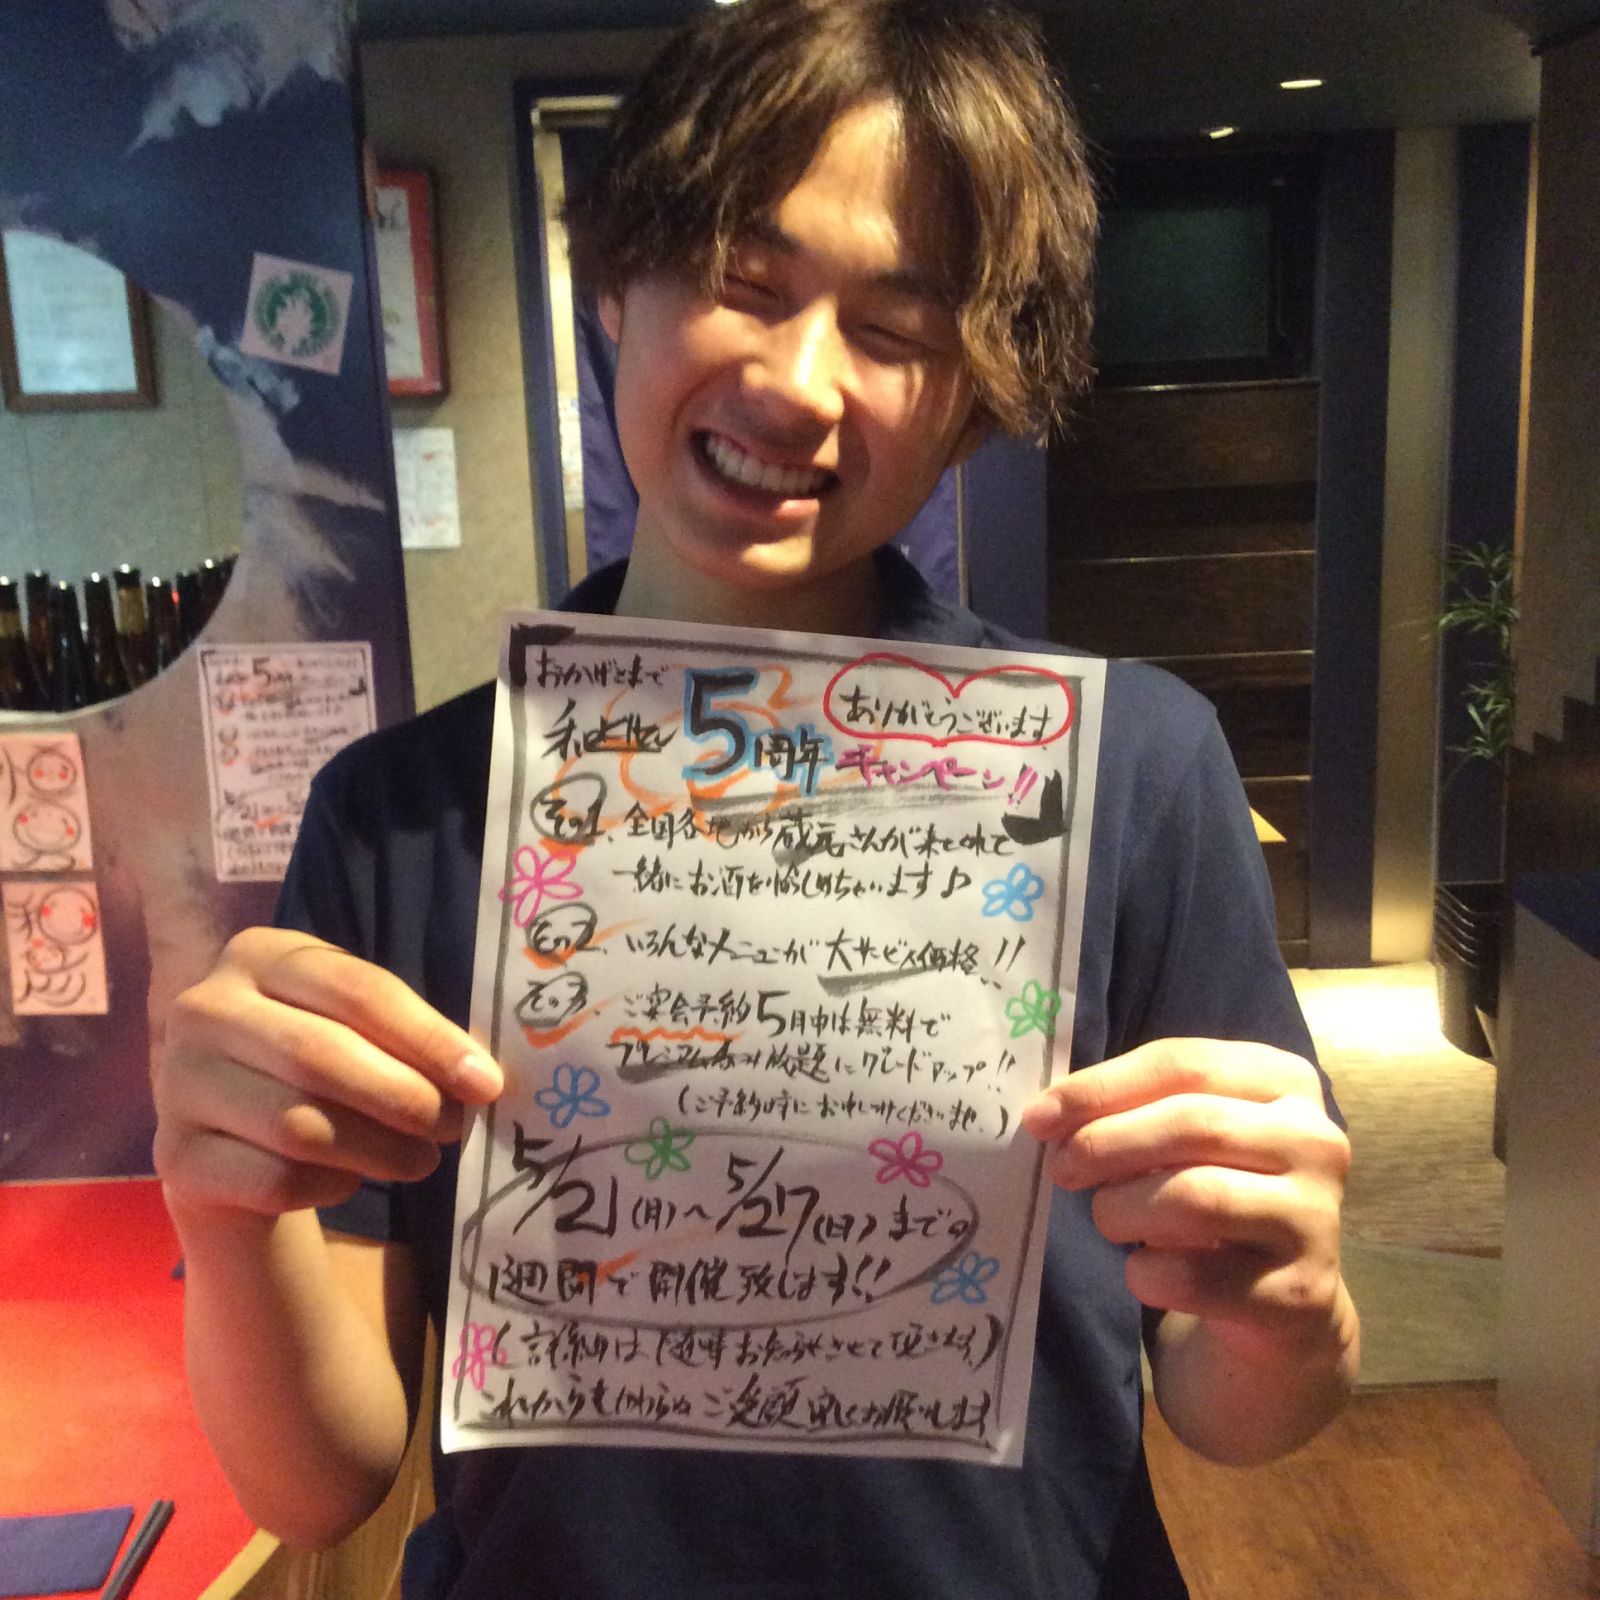 おかげさまで
5周年
キャンペーン!!
ありがとうございます
その1、全国各地から蔵元さんが来てくれて
一緒にお酒を愉しめちゃいます♪
その2、いろんなメニューが大サービス価格!!
その3、ご宴会予約5月中は無料で
プレミアム飲み放題にグレードアップ!!
(ご予約時にお申しつけくださいませ。)
5/21(月)〜5/27(日)までの
1週間で開催致します!!
(詳細は随時お知らせさせて頂きます)
これからも変わらぬご愛顧宜しくお願いします